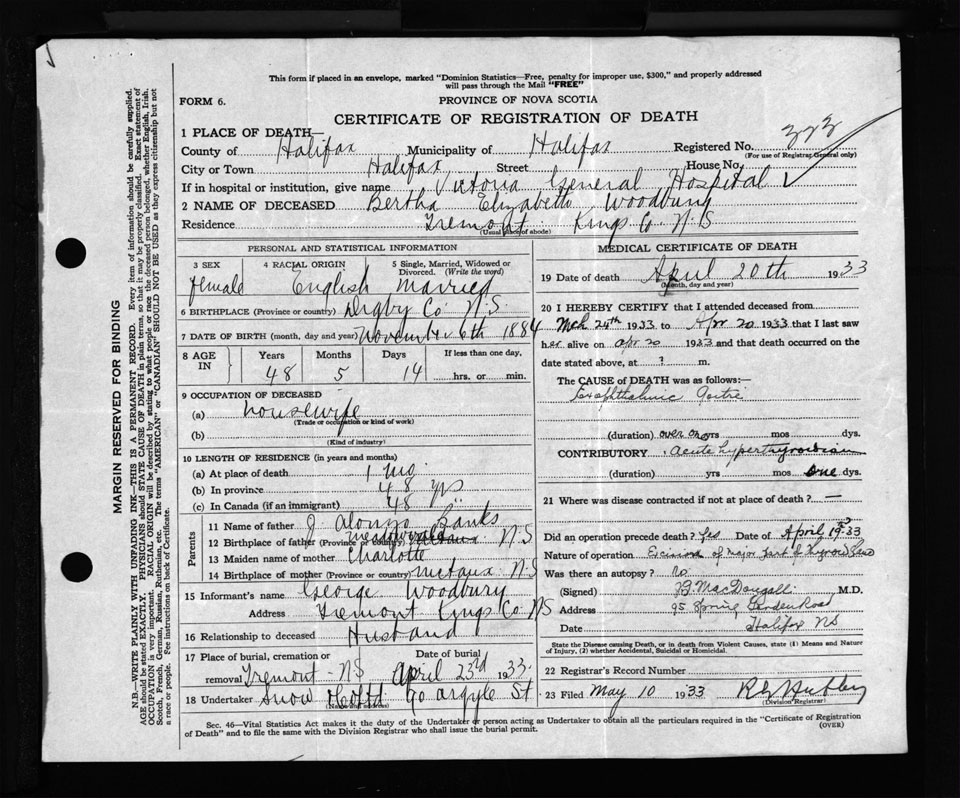 This form if placed in an envelope, marked "Dominion Statistics—Free, penalty for improper use, $300," and properly addressed
will pass through the Mail "FREE"
FORM 6.
PROVINCE OF NOVA SCOTIA
CERTIFICATE OF REGISTRATION OF DEATH
1 PLACE OF DEATH—
County of Halifax Municipality of Halifax Registered No. 323
(For use of Registrar General only)
City or Town Halifax Street House No.
If in hospital or institution, give name Victoria General Hospital
2 NAME OF DECEASED Bertha Elizabeth Woodbury
Residence Tremont Kings Co N.S
(Usual place of abode)
PERSONAL AND STATISTICAL INFORMATION
3 SEX 4 RACIAL ORIGIN 5 Single, Married, Widowed or
Divorced. (Write the word)
female English married
6 BIRTHPLACE (Province or country) Digby Co N.S.
7 DATE OF BIRTH (month, day and year) November 6th 1884
8 AGE IN Years Months Days If less than one day,
48 5 14 hrs. or min.
9 OCCUPATION OF DECEASED
(a) housewife
(Trade or occupation or kind of work)
(b)
(Kind of industry)
10 LENGTH OF RESIDENCE (in years and months)
(a) At place of death 1 mo.
(b) In province 48 yrs
(c) In Canada (if an immigrant) 48 "
Parents
11 Name of father J. Alonzo Banks
12 Birthplace of father (Province or country) N.S
13 Maiden name of mother Charlotte
14 Birthplace of mother (Province or country) Nictaux N.S
15 Informant's name George Woodbury
Address Tremont Kings Co NS
16 Relationship to deceased Husband
17 Place of burial, cremation or Date of burial
removal Tremont - NS April 23rd 1933.
18 Undertaker Snow Co Ltd 90 Argyle St
(Name and address)
MEDICAL CERTIFICATE OF DEATH
19 Date of death April 20th 1933
(Month, day and year)
20 I HEREBY CERTIFY that I attended deceased from
Mch 25th 1933 to Apr 20 1933 that I last saw
her alive on apr 20 1933 and that death occurred on the
date stated above, at ? m.
The CAUSE OF DEATH was as follows:—
Exophthalmic Goitre
(duration) over one yrs mos dys.
CONTRIBUTORY Acute hyperthyroidism
(duration) yrs mos one dys.
21 Where was disease contracted if not at place of death? —
Did an operation precede death? Yes Date of April 19 33
Nature of operation Excision of Major Part of Thyroid Gland
Was there an autopsy? no
(Signed) J.G. MacDougall M.D.
Address 95 Spring Garden Road
Date Halifax NS
State the Disease causing Death, or in death from Violent Causes, state (1) Means and Nature
of Injury, (2) whether Accidental, Suicidal or Homicidal.
22 Registrar's Record Number
23 Filed May 10 1933 Hubley
(Division Registrar)
Sec. 46—Vital Statistics Act makes it the duty of the Undertaker or person acting as Undertaker to obtain all the particulars required in the "Certificate of Registration
of Death" and to file the same with the Division Registrar who shall issue the burial permit.
(OVER)
MARGIN RESERVED FOR BINDING
N.B.—WRITE PLAINLY WITH UNFADING INK—THIS IS A PERMANENT RECORD. Every item of information should be carefully supplied.
AGE should be stated EXACTLY. PHYSICIANS should STATE CAUSE OF DEATH in plain terms, so that it may be properly classified. Exact statement of
OCCUPATION is very important. RACIAL ORIGIN will be described by stating to what people or race the deceased person belonged, whether English, Irish,
Scotch, French, German, Russian, Ruthenian, etc. The terms "AMERICAN" or "CANADIAN" SHOULD NOT BE USED as they express citizenship but not
a race or people. See instructions on back of Certificate.